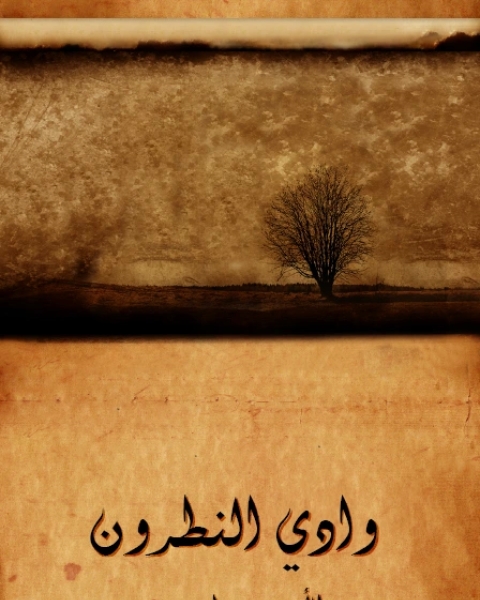 وادي النطرون